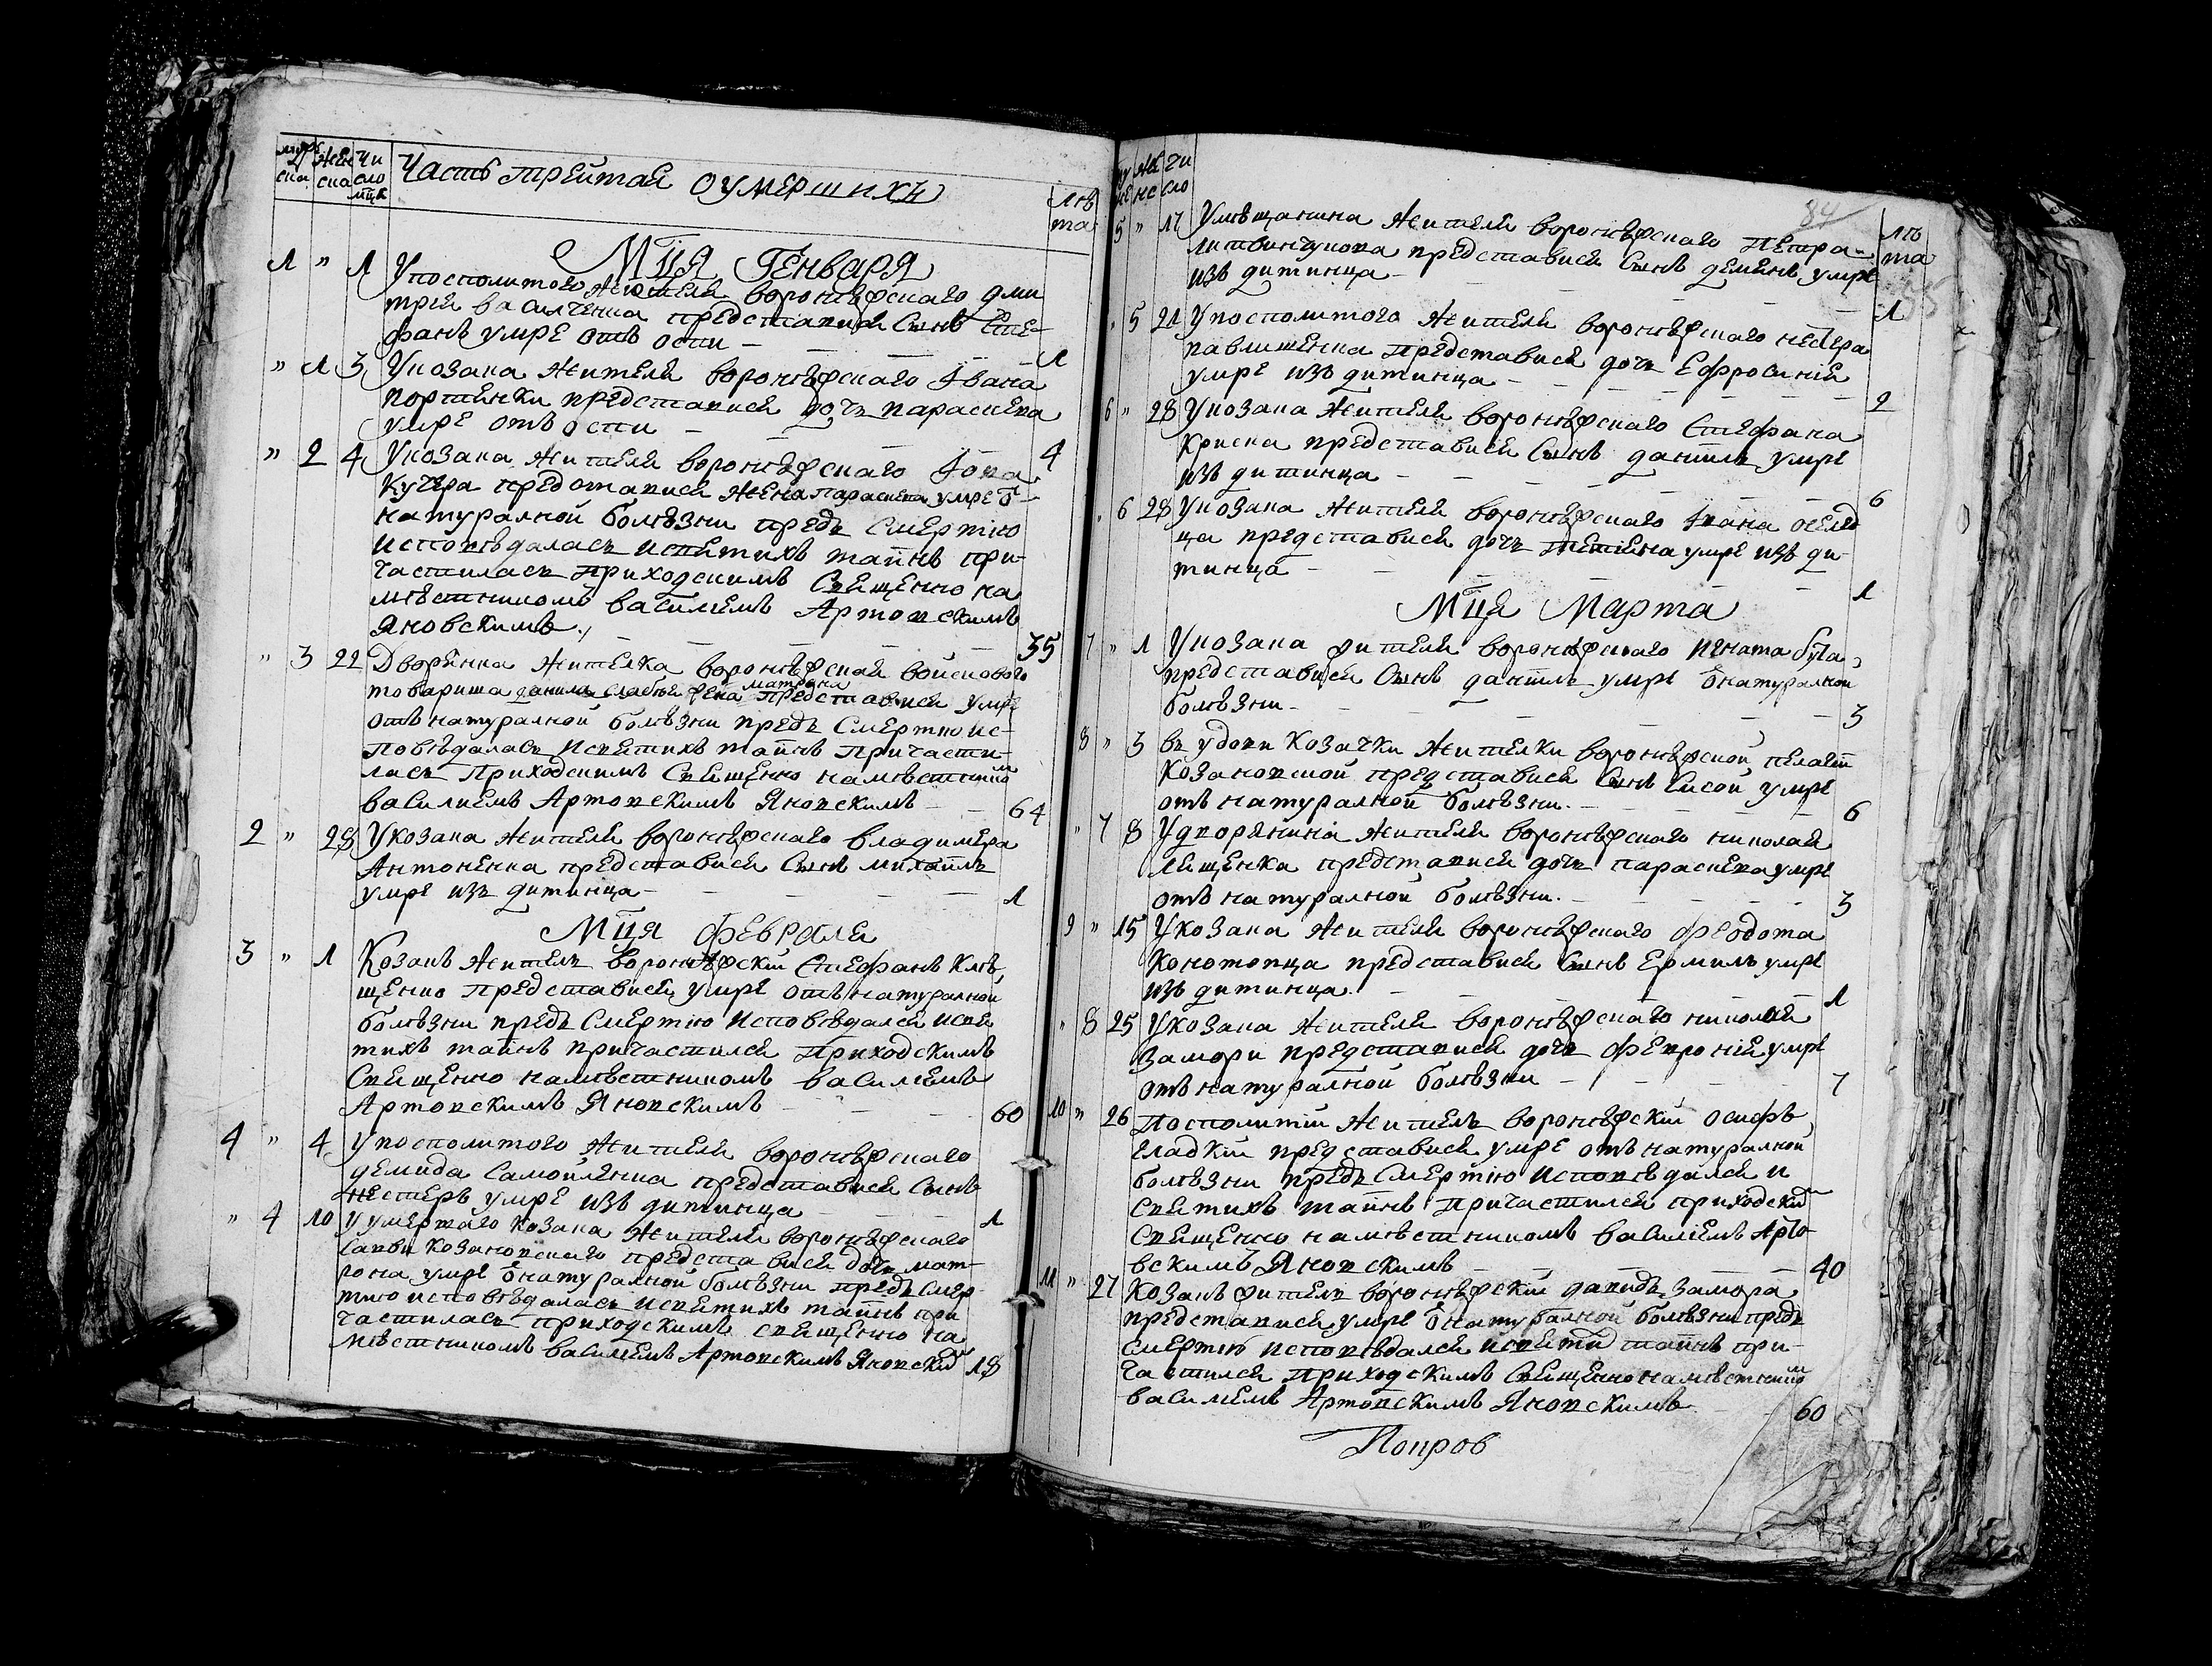 муж
ска
жен
ска
чи
сло
мця
Часть третая оумершихъ
лѣ
та
Мця Генваря
1 " 1 Упосполитого жителя воронѣжскаго Дми
трея василченка представися Сынъ Сте-
фанъ умре отъ оспи — 1
" 1 3 Укозака жителя воронѣжскаго Івана
портянки представися дочъ параскева
умре отъ оспи — 4
" 2 4 Укозака жителя воронѣжскаго Іова
кучера представися жена параскева умре ѿ
натуралной болѣзни предъ Смертію
исповѣдаласъ исвятихъ таинъ при-
частиласъ приходскимъ Священно на
мѣстникомъ василіемъ Артовскимъ
Яновскимъ. 35
" 3 22 Дворянка жителка воронѣжская войскового
матрона
товариша данила жена представися умре
отъ натуралной болѣзни предъ Смертію ис-
повѣдаласъ исвятихъ таинъ причасти-
ласъ приходскимъ Священно намѣстником
василиемъ Артовскимъ Яновскимъ — 64
2 " 28 Укозака жителя воронѣжскаго владимера
Антоненка представися Сынъ михаилъ
умре изъ дитинца — 1
Мця февраля
3 " 1 Козакъ житель воронѣжскій Стефанъ Клѣ
щенко представися умре отъ натуралной
болѣзни предъ Смертію исповѣдался исвя
тихъ таинъ причастился приходскимъ
Священно намѣстникомъ василиемъ
Артовскимъ Яновскимъ 60
4 " 4 Упосполитого жителя воронѣжскаго
демида Самойленка представися Сынъ
нестеръ умре изъ дитинца 1
" 4 10 У умертаго козака жителя воронѣжскаго
Савви козановскаго представися дочъ мат-
рона умре ѿнатуралной болѣзни предъ Смер
тию исповѣдаласъ исвятихъ таинъ при
частиласъ приходскимъ священно на
мѣстникомъ василиемъ Артовскимъ Яновским 18
му
же
же
нс
чи
сло
84
лѣ
та
5 " 17 Умѣщанина жителя воронѣжскаго Петра
литвинчукова представися Сынъ демянъ умре
изъ дитинца — 1
" 5 21 Упосполитого жителя воронѣжскаго нестера
павлишенка представися дочъ Ефросинія
умре изъ дитинца — 2
6 " 28 Укозака жителя воронѣжскаго Стефана
криска представися Сынъ даніилъ умре
изъ дитинца — 6
" 6 28 Укозака жителя воронѣжскаго Івана
ца представися дочъ тетяна умре изъ ди-
тинца — 1
Мця Марта
7 " 1 Укозака жителя воронѣжского игната
представися Сынъ даніилъ умре ѿнатуралной
болѣзни — 3
8 " 3 въ удови Козачки жителки воронѣжской пелагіи
Козановской представися Сынъ умре
отъ натуралной болѣзни. 6
" 7 8 Удворянина жителя воронѣжскаго николая
лещенка представися дочъ параскева умре
отъ натуралной болѣзни. 3
9 " 15 Укозака жителя воронѣжскаго феодота
Конотопца представися Сынъ Ермилъ умре
изъ дитинца — 1
" 8 25 Укозака жителя воронѣжскаго николая
Замори представися дочъ февронія умре
отъ натуралной болѣзни — 7
10 " 26 Посполитій жителъ воронѣжскій осифъ
гладкій представися умре отъ натуралной
болѣзни предъ Смертію исповѣдался и
святихъ таинъ причастился приходским
Священно намѣстникомъ василіемъ Арто
вскимъ Яновскимъ 40
11 " 27 Козакъ жителъ воронѣжскій давидъ Замора
представися умре ѿнатуралной болѣзни предъ
Смертію исповѣдался исвяти таинъ при-
частился приходскимъ Священно намѣстником
василиемъ Артовскимъ Яновскимъ 60
Покров